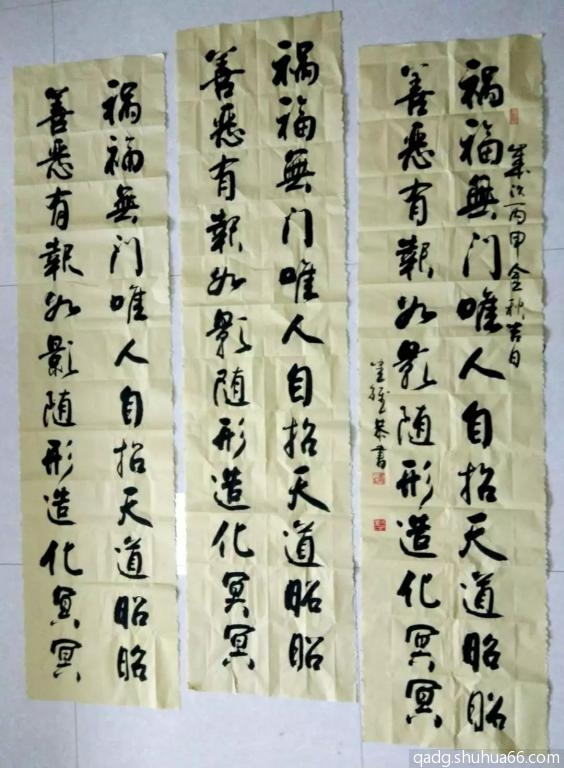 歲次丙申金秋吉日
祸福無门唯人自招天道昭昭
善恶有報如影随形造化冥冥
恭書
祸福無门唯人自招天道昭昭
善恶有報如影随形造化冥冥
祸福無门唯人自招天道昭昭
善恶有報如影随形造化冥冥
qadg.shuhua66.com